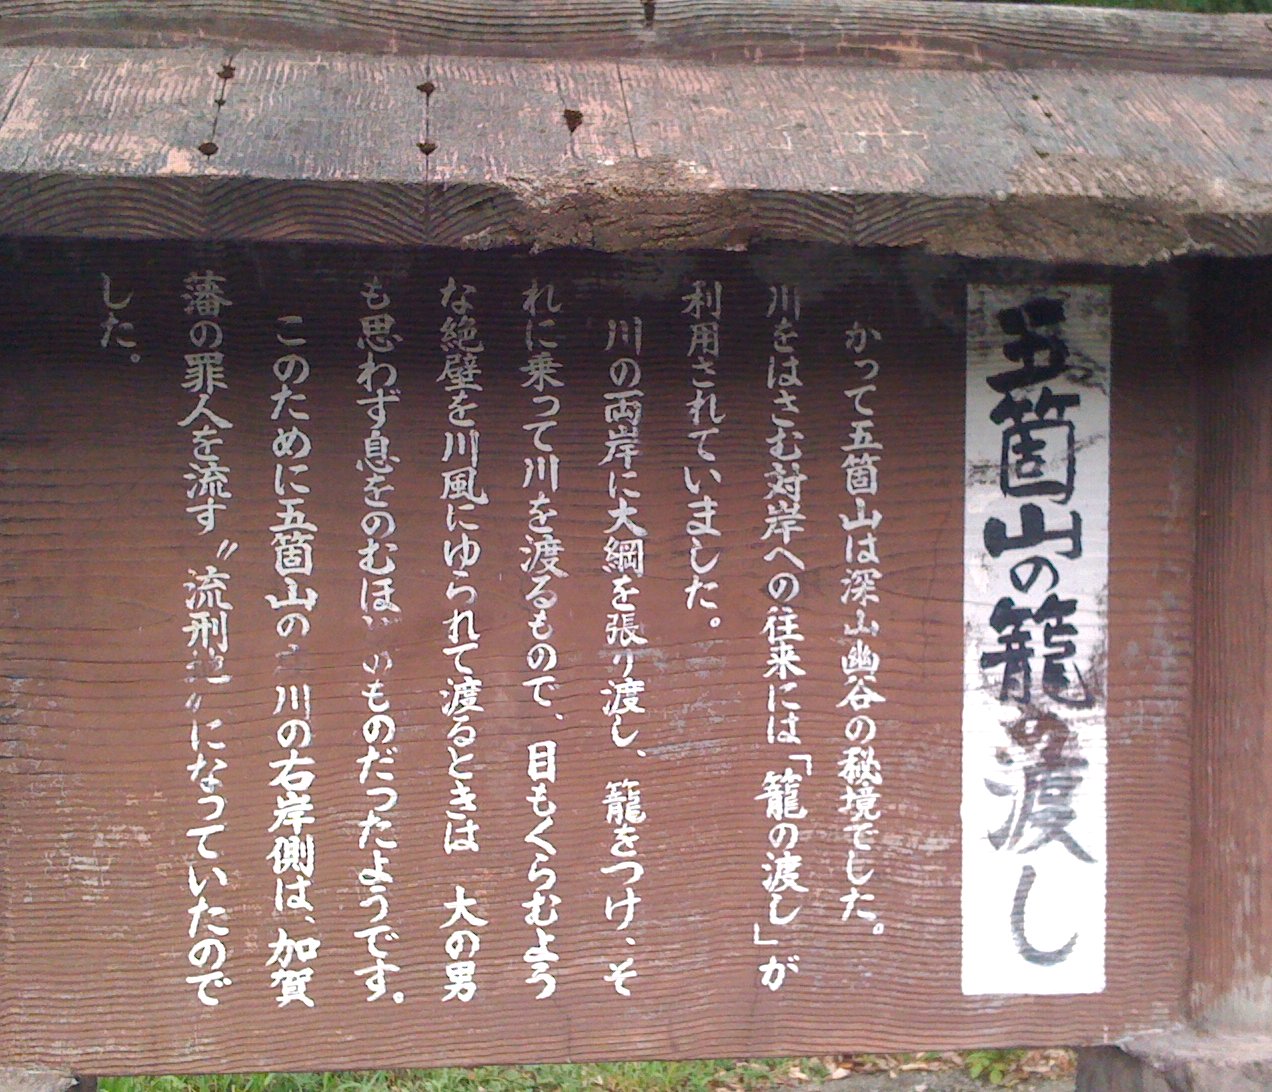 五箇山の籠の渡し
かって五箇山は深山幽谷の秘境でした。
川をはさむ対岸への往来には「籠の渡し」が
利用されていました。
川の両岸に大綱を張り渡し、籠をつけ、そ
れに乗って川を渡るもので、目もくらむよう
な絶壁を川風にゆられて渡るときは大の男
も思わず息をのむほどのものだったようです。
このために五箇山の 川の右岸側は、加賀
藩の罪人を流す〃流刑地〃になっていたので
した。